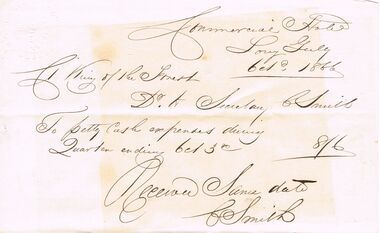 Commercial Hotel
Long Gully
Octr. 1866
Ct King of the Forest
Dr. to Secretary C Smith
To petty cash expenses during
Quarter ending Oct 3rd 8/6
Received Same date
C Smith